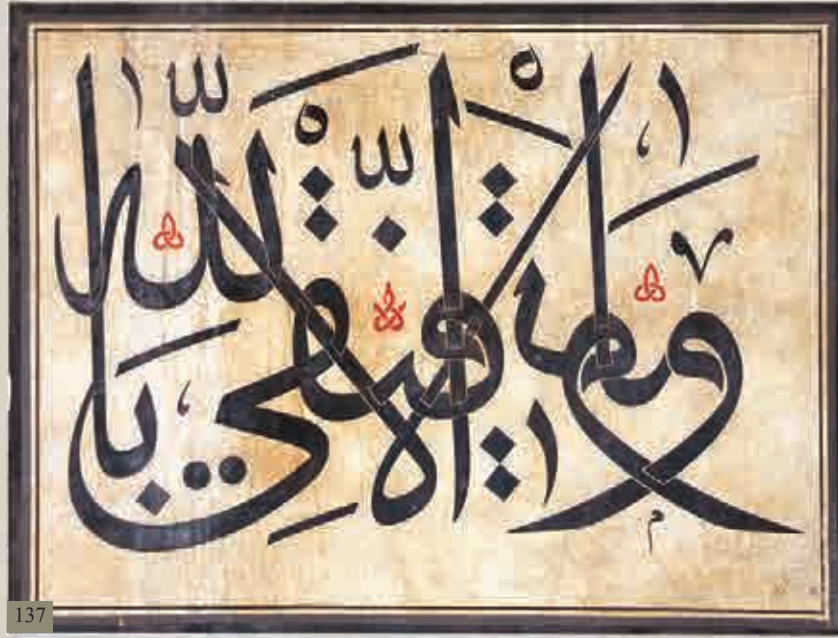 وما توفيقي إلا بالله
137